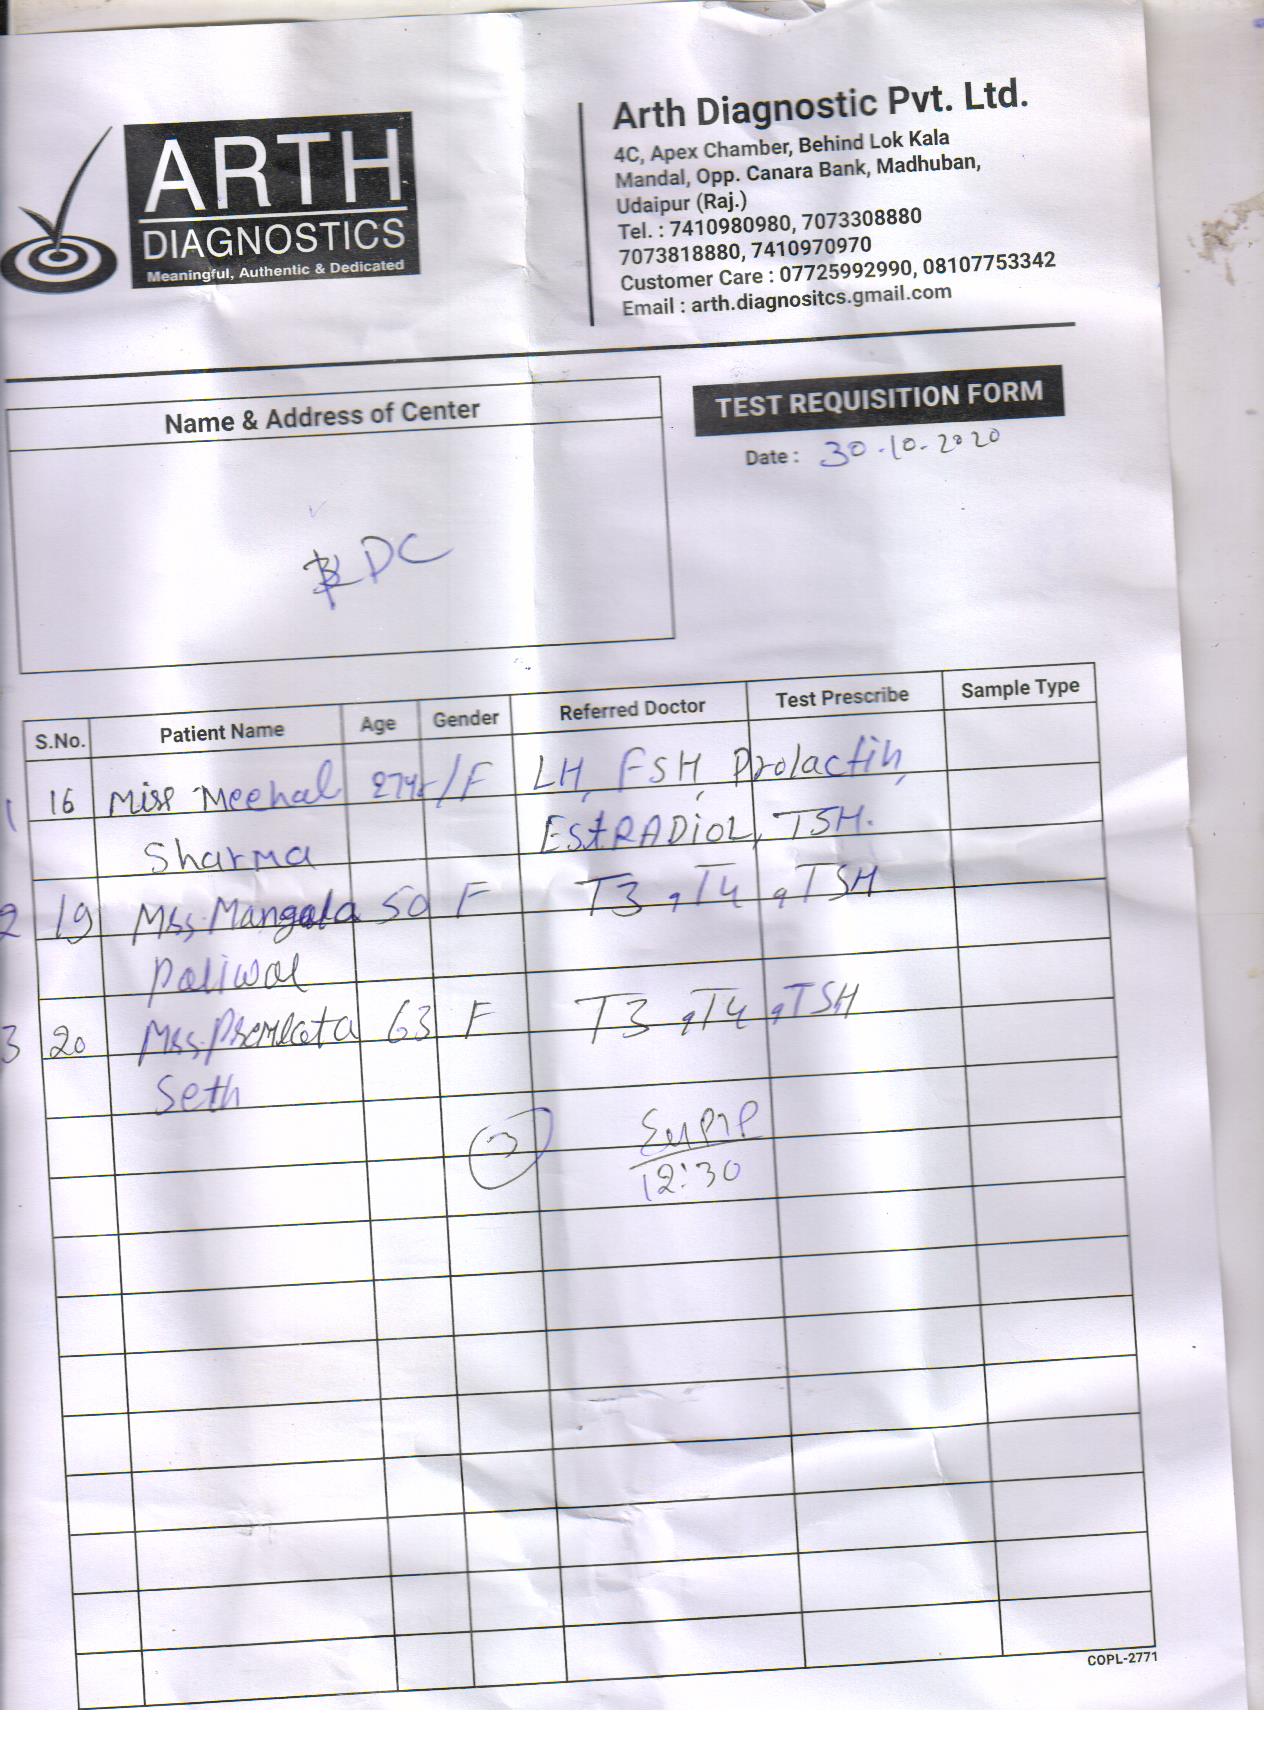 ARTH
DIAGNOSTICS
Meaningful, Authentic & Dedicated
Arth Diagnostic Pvt. Ltd.
4C, Apex Chamber, Behind Lok Kala
Mandal, Opp. Canara Bank, Madhuban,
Udaipur (Raj.)
Tel. : 7410980980, 7073308880
7073818880, 7410970970
Customer Care : 07725992990, 08107753342
Email : arth.diagnositcs.gmail.com
Name & Address of Center
TEST REQUISITION FORM
Date : 30-10-2020
DC
S.No. Patient Name Age Gender Referred Doctor Test Prescribe Sample Type
1 16 Miss Meehal 27yr/F LH, FSH, Prolactin,
Sharma EstRADiOL, TSH.
2 19 Mss. Mangala 50 F T3, T4, TSH
Paliwal
3 20 Mss. Premlata 63 F T3, T4, TSH
Seth
3
12:30
COPL-2771